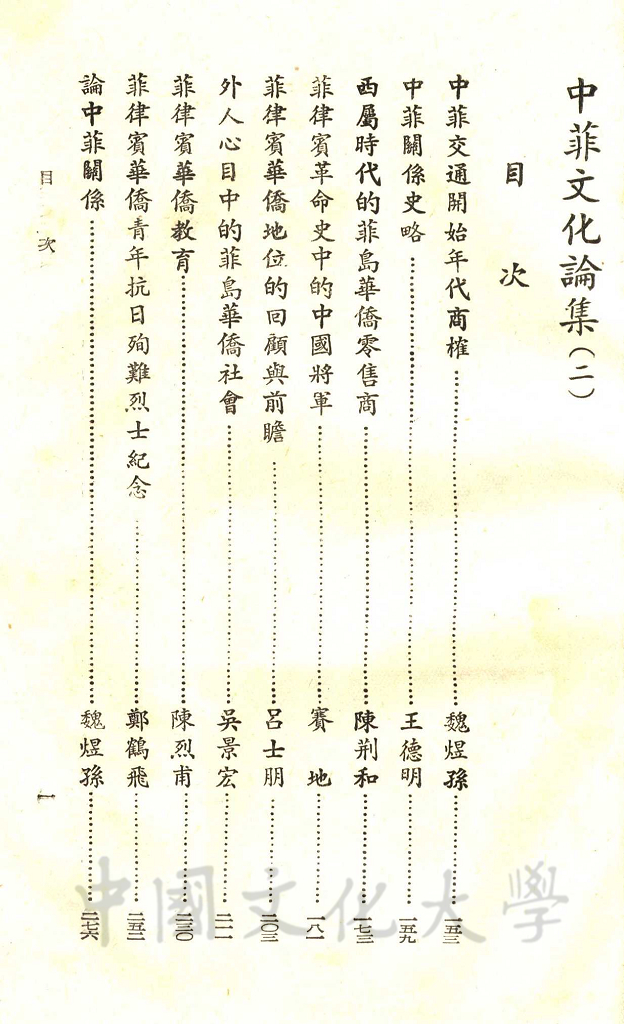 中菲文化論集(二)
目次
中菲交通開始年代商榷……魏煜孫……一五三
中菲關係史略……王德明……一五九
西屬時代的菲島華僑零售商……陳荆和……一七三
菲律賓革命史中的中國將軍……賽地……一八一
菲律賓華僑地位的回顧與前瞻……呂士朋……二〇三
外人心目中的菲島華僑社會……吳景宏……二一一
菲律賓華僑教育……陳烈甫……二三〇
菲律賓華僑青年抗日殉難烈士紀念……鄭鶴飛……二五二
論中菲關係……魏煜孫……二七六
目次
一
中國文化大學